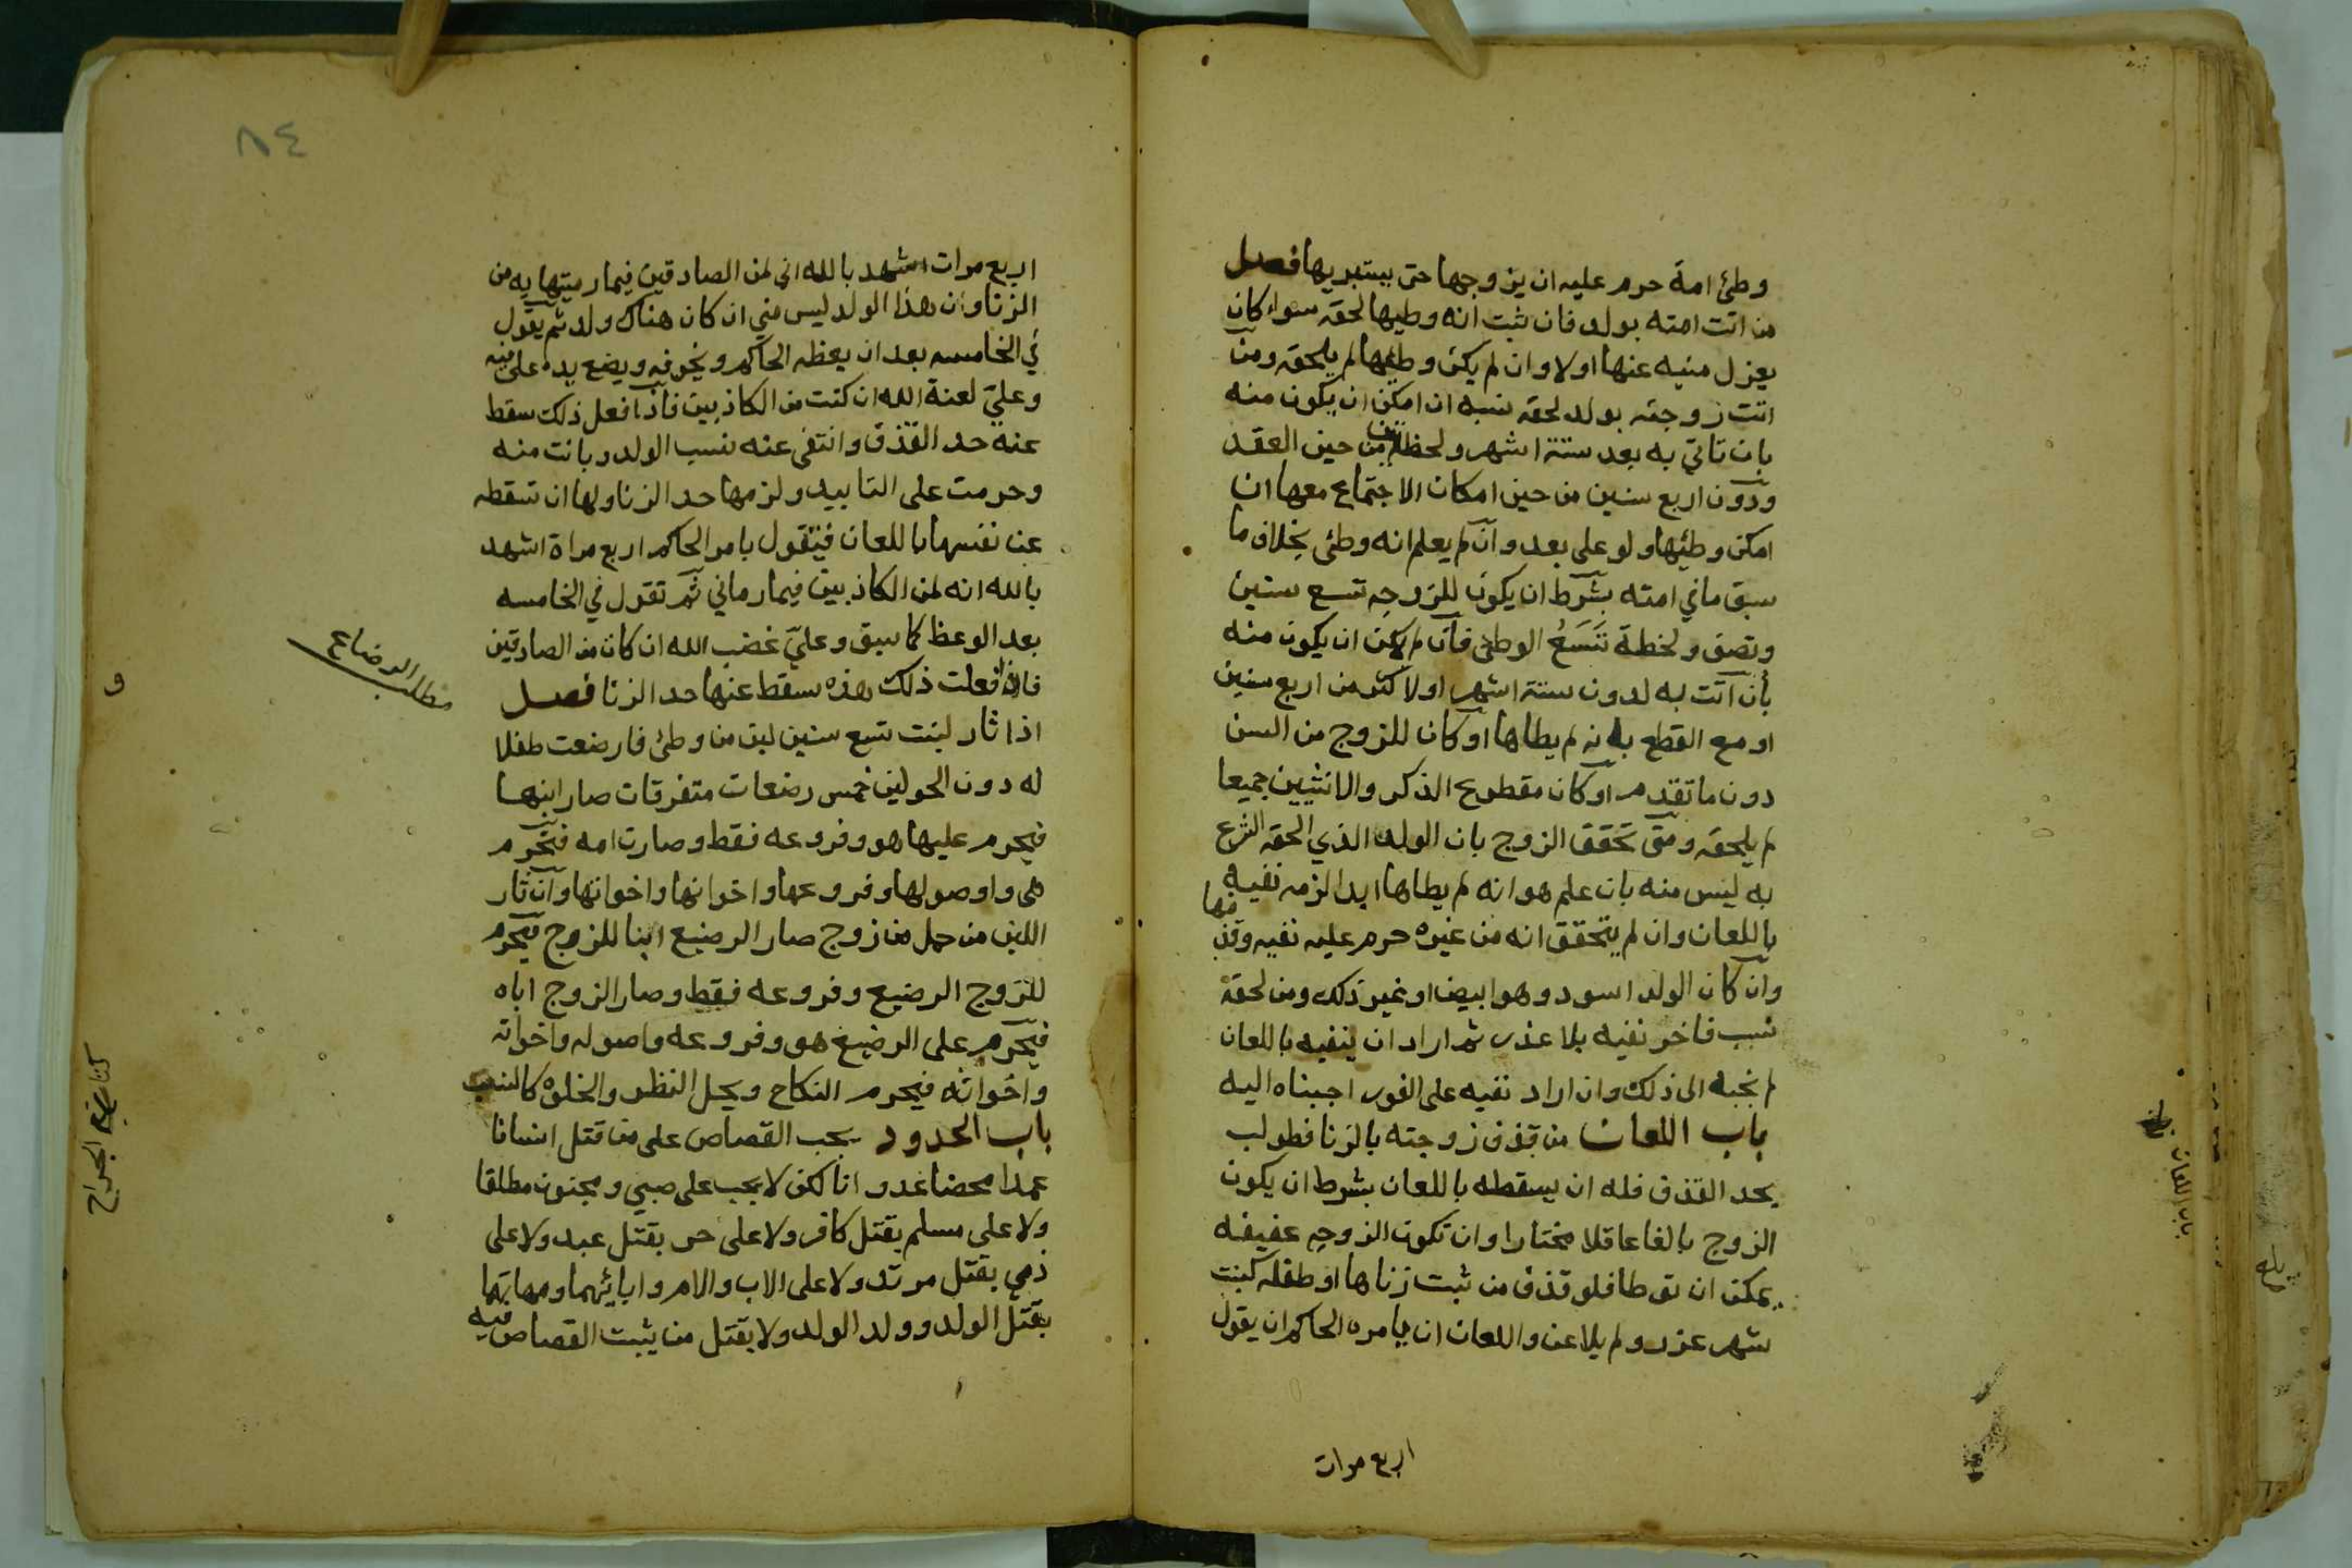 وطئ امة حرم عليه ان يزوجها حتى يستبريها فصل
من اتت امته بولد فان ثبت انه وطيها لحقه سواء كان
يعزل منيه عنها اولا وان لم يكن وطيها لم يلحقه ومن
اتت زوجته بولد لحقه نسبه ان امكن ان يكون منه
بان تاتي به بعد ستة اشهر ولحظتين من حين العقد
ودون اربع سنين من حين امكان الاجتماع معها ان
امكن وطئها ولو على بعد وان لم يعلم انه وطئ بخلاف ما
سبق ما في امته بشرط ان يكون للزوجه تسع سنين
ونصف ولحظة تسع الوطئ فان لم يكن ان يكون منه
بأن اتت به لدون ستة اشهر او لاكثر من اربع سنين
او مع القطع بانه لم يطاها او كان للزوج من السن
دون ما تقدم او كان مقطوع الذكر والانثيين جميعا
لم يلحقه ومتى تحقق الزوج بان الولد الذي الحقه الشرع
به ليس منه بان علم هو انه لم يطاها ابدا لزمه نفيه
باللعان وان لم يتحقق انه من غيره حرم عليه نفيه وقذفها
وان كان الولد اسود وهو ابيض او غير ذلك ومن لحقه
نسب فاخر نفيه بلا عذر ثم اراد ان ينفيه باللعان
لم نجبه الى ذلك وان اراد نفيه على الفور اجبناه اليه
باب اللعان من قذف زوجته بالزنا فطولب
بحد القذف فله ان يسقطه باللعان بشرط ان يكون
الزوج بالغا عاقلا مختارا وان تكون الزوجه عفيفه
يمكن ان توطا فلو قذف من ثبت زناها او طفله كبنت
شهر عزر ولم يلاعن واللعان ان يامره الحاكم ان يقول
اربع مرات
باب اللعان
٨٤
اربع مرات اشهد بالله اني لمن الصادقين فيما رميتها به من
الزنا وان هذا الولد ليس مني ان كان هناك ولد ثم يقول
في الخامسه بعد ان يعظه الحاكم ويخوفه ويضع يده على فيه
وعليّ لعنة الله ان كنت من الكاذبين فاذا فعل ذلك سقط
عنه حد القذف وانتفى عنه نسب الولد وبانت منه
وحرمت على التابيد ولزمها حد الزنا ولها ان تسقطه
عن نفسها باللعان فتقول بامر الحاكم اربع مراة اشهد
بالله انه لمن الكاذبين فيما رماني ثم تقول في الخامسه
بعد الوعظ كما سبق وعليّ غضب الله ان كان من الصادقين
فاذا فعلت ذلك هذه سقط عنها حد الزنا فصل
اذا ثار لبنت تسع سنين لبن من وطئ فارضعت طفلا
له دون الحولين خمس رضعات متفرقات صار ابنها
فيحرم عليها هو وفروعه فقط وصارت امه فتحرم
هي واوصولها وفروعها واخوانها واخواتها وان ثار
اللبن من حمل من زوج صار الرضيع ابنا للزوج فيحرم
للزوج الرضيع وفروعه فقط وصار الزوج اباه
فيحرم على الرضيع هو وفروعه واصوله واخوانه
واخواته فيحرم النكاح ويحل النظر والخلوه كالنسب
باب الحدود يجب القصاص على من قتل انسانا
عمدا محضا عدوانا لكن لا يجب على صبي ومجنون مطلقا
ولا على مسلم بقتل كافر ولا على حر بقتل عبد ولا على
ذمي بقتل مرتد ولا على الاب والام وابائهما وامهاتهما
بقتل الولد وولد الولد ولا بقتل من يثبت القصاص فيه
مطلب الرضاع
و
كتاب الجراح